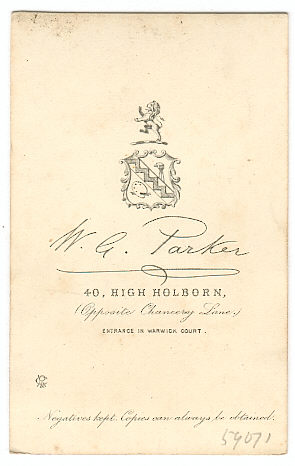 W. G. Parker
40, HIGH HOLBORN,
(Opposite Chancery Lane.)
ENTRANCE IN WARWICK COURT.
Negatives kept. Copies can always be obtained.
59071